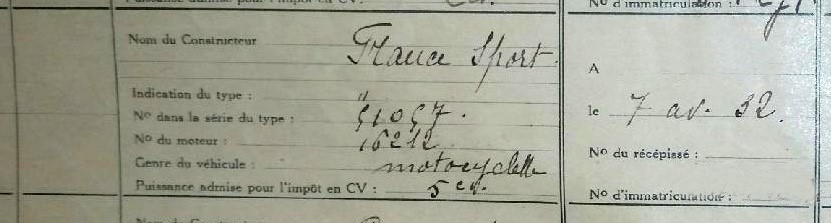 Puissance admise pour l'impôt en CV :
No d'immatriculation :
Nom du Constructeur France Sport
A
Indication du type : "
No dans la série du type : 51057.
le 7 av. 32.
No du moteur : 16212
No du récépissé :
Genre du véhicule : motocyclette
Puissance admise pour l'impôt en CV : 5 cv.
No d'immatriculation :
Nom du Constructeur